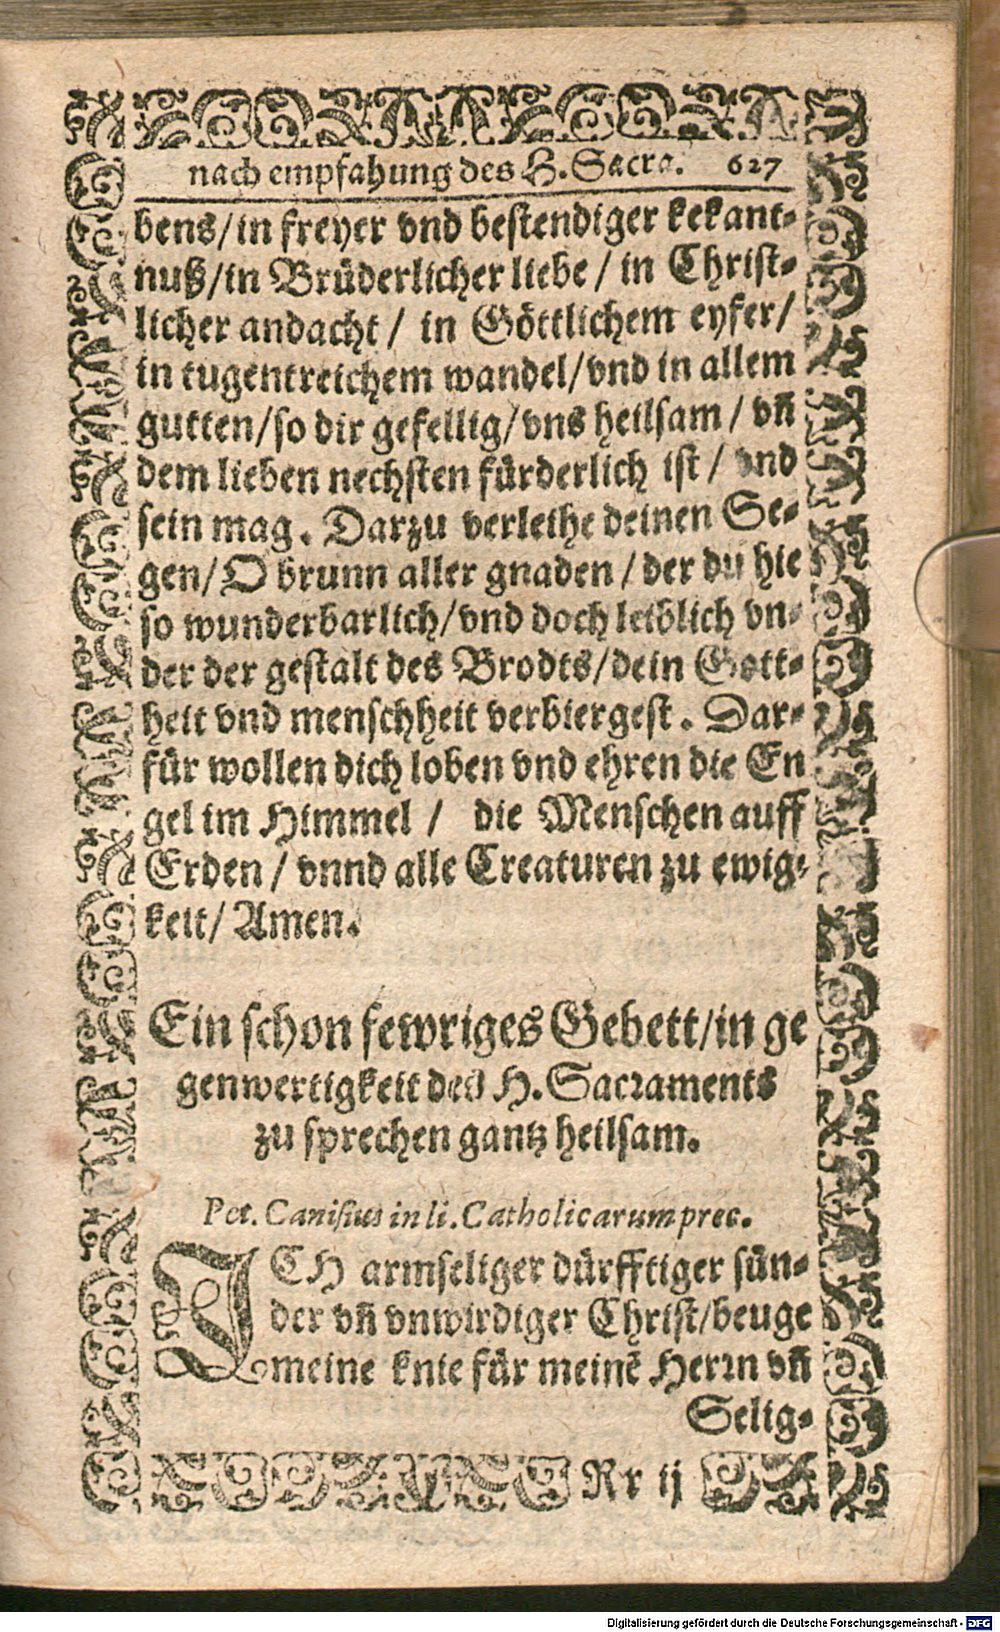 nach empfahung des H. Sacra. 627
bens/in freyer vnd bestendiger kekant-
nuß/in Brüderlicher liebe / in Christ-
licher andacht / in Göttlichem eyfer/
in tugentreichem wandel/vnd in allem
gutten/so dir gefellig/vns heilsam / vn̄
dem lieben nechsten fürderlich ist / vnd
sein mag. Darzu verleihe deinen Se-
gen/O brunn aller gnaden / der du hie
so wunderbarlich/vnd doch leiblich vn-
der der gestalt des Brodts/dein Gott-
heit vnd menschheit verbiergest. Dar-
für wollen dich loben vnd ehren die En
gel im Himmel / die Menschen auff
Erden / vnnd alle Creaturen zu ewig-
keit/ Amen.
Ein schon fewriges Gebett/in ge
genwertigkeit des H. Sacraments
zu sprechen gantz heilsam.
Pet. Canisius in li. Catholicarum prec.
ICH armseliger dürfftiger sün-
der vn̄ vnwirdiger Christ/beuge
meine knie für meinē Herrn vn̄
Selig-
Rr ij
Digitalisierung gefördert durch die Deutsche Forschungsgemeinschaft - DFG